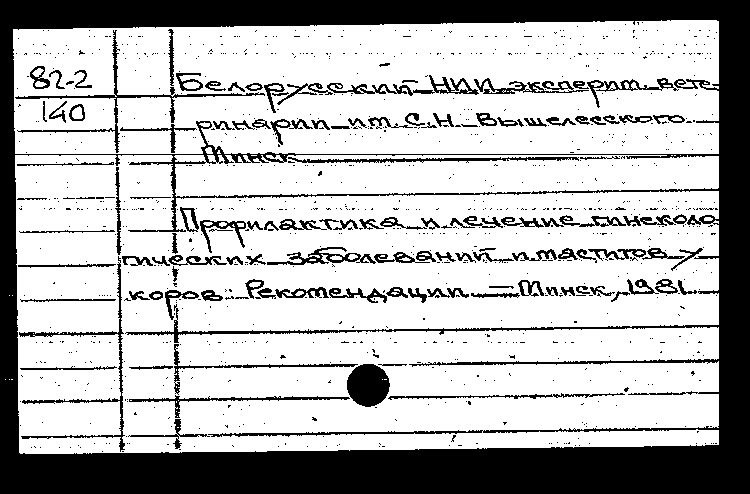 82-2
140
Белорусский НИИ эксперим. вете-
ринарии им. С.Н. Вышелесского.
Минск
Профилактика и лечение гинеколо-
гических заболеваний и маститов у
коров: Рекомендации. — Минск, 1981